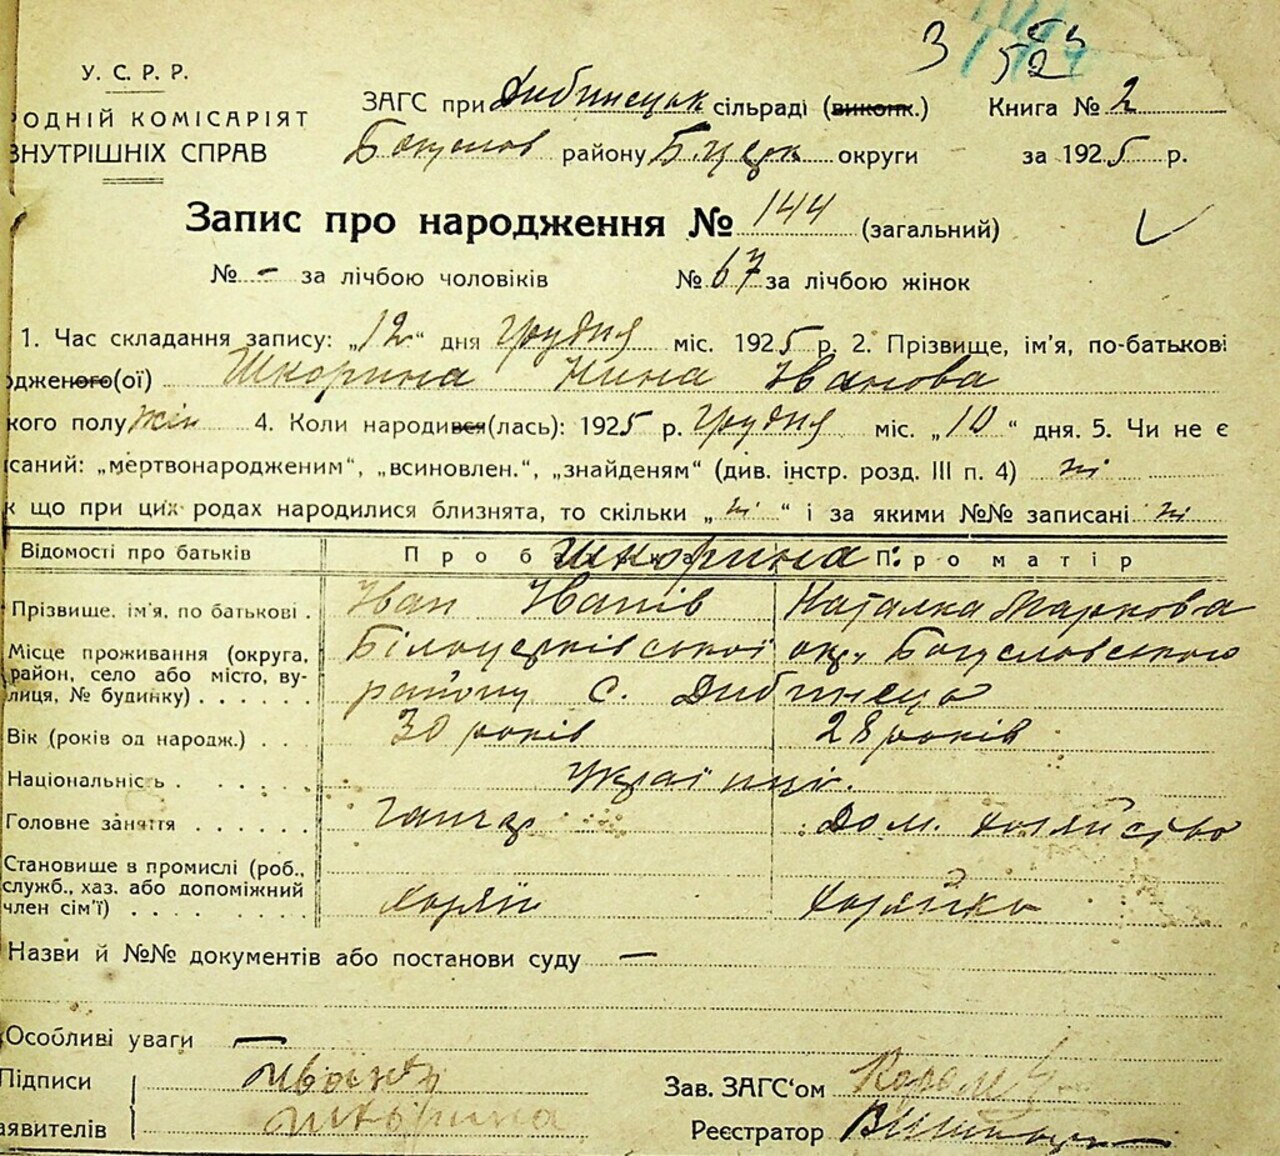 3 52
У. С. Р. Р.
РОДНІЙ КОМІСАРІЯТ
ВНУТРІШНІХ СПРАВ
ЗАГС при Дибинецьк сільраді (виконк.) Книга № 2
Богуслов району Б.Церк округи за 1925 р.
Запис про народження № 144 (загальний)
№ – за лічбою чоловіків № 67 за лічбою жінок
1. Час складання запису: „12“ дня грудня міс. 1925 р. 2. Прізвище, ім'я, по-батькові
одженого(ої) Шкорина Нина Іванова
кого полу жін 4. Коли народився(лась): 1925 р. грудня міс. „10“ дня. 5. Чи не є
саний: „мертвонародженим“, „всиновлен.“, „знайденям“ (див. інстр. розд. III п. 4) ні
к що при цих родах народилися близнята, то скільки „ні“ і за якими №№ записані ні
Відомості про батьків Про батька Шкорина Про матір
Прізвище, ім'я, по батькові . Іван Іванів Наталка Маркова
Місце проживання (округа, Білоцерківської окр., Богуславського
район, село або місто, ву-
лиця, № будинку) . . . . . . району с. Дибинець
Вік (років од народж.) . . . 30 років 28 років
Національність . . . . . . Українці.
Головне заняття . . . . . . ганчар Дом. хозяйство
Становище в промислі (роб.,
служб., хаз. або допоміжний
член сім'ї) . . . . . . . хозяїн хозяйка
Назви й №№ документів або постанови суду —
Особливі уваги —
Підписи
аявителів Шкорина
Зав. ЗАГС'ом
Реєстратор